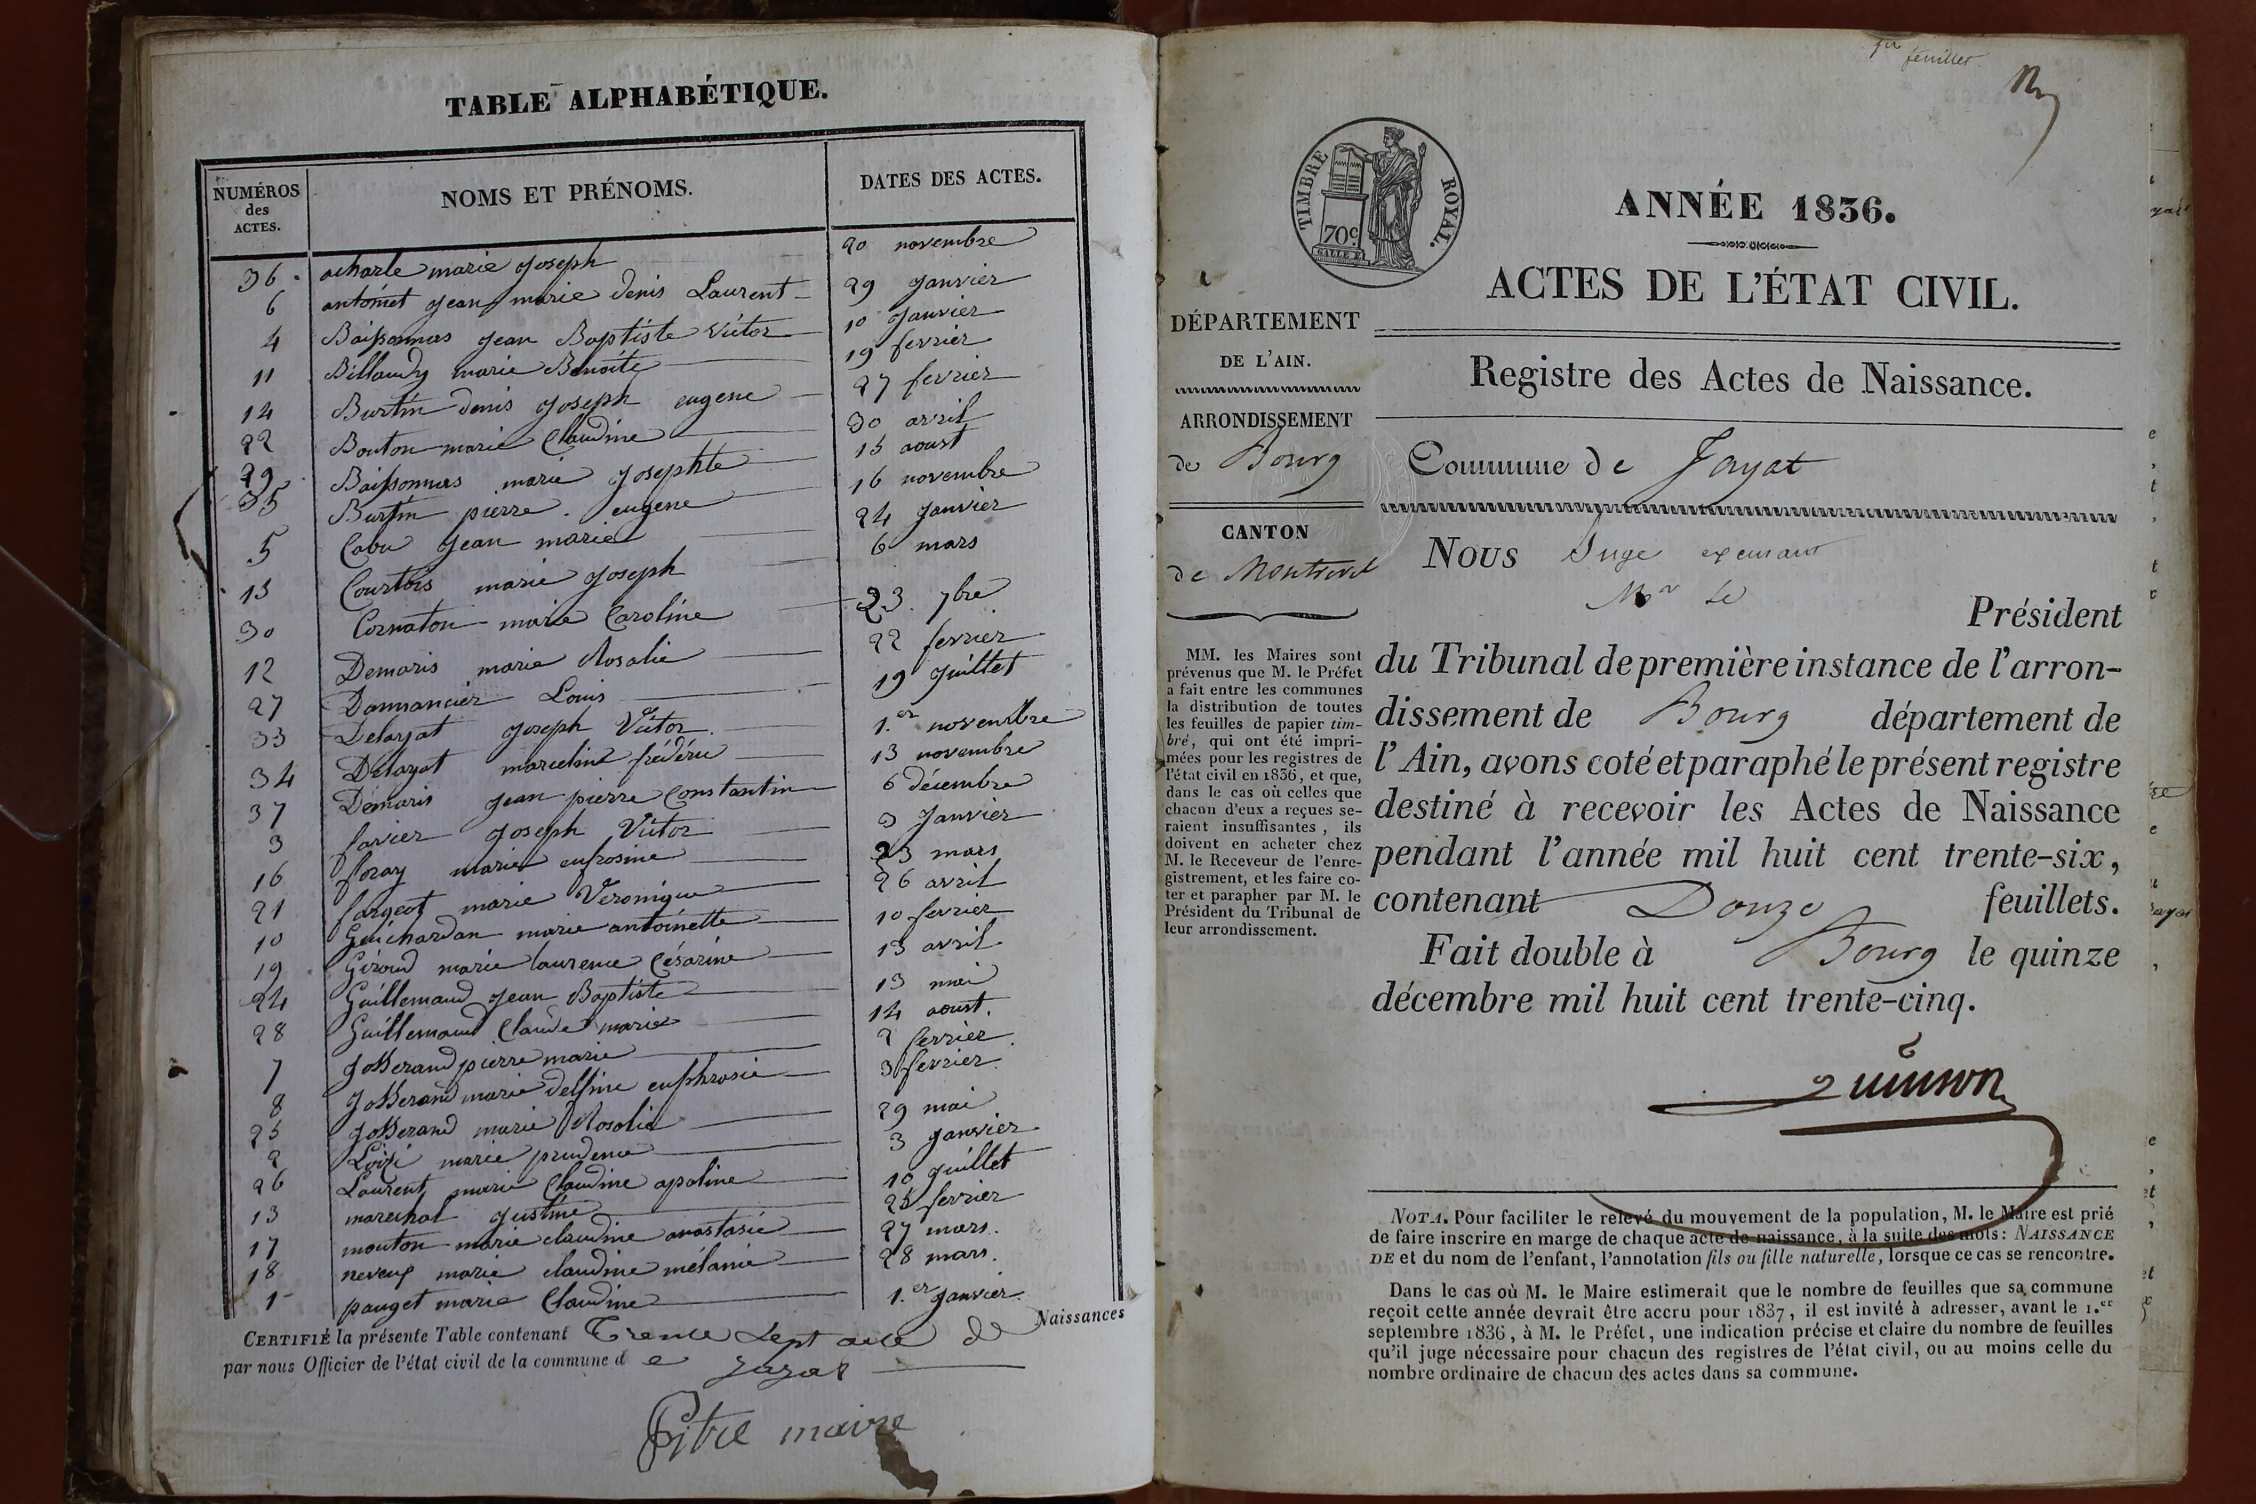 TABLE ALPHABÉTIQUE.
NUMÉROS
des
ACTES.
NOMS ET PRÉNOMS.
DATES DES ACTES.
36. acharle marie Joseph 20 novembre
6 antoinet Jean marie denis Laurent 29 Janvier
4 Baissonnas Jean Baptiste Victor 10 Janvier
11 Billaudy marie Benoite 19 fevrier
14 Burtin denis Joseph eugene 27 fevrier
22 Bouton marie Claudine 30 avril
29 Baissonnas marie Josephte 15 aoust
35 Burtin pierre eugene 16 novembre
5 Cabu Jean marie 24 Janvier
15 Courtois marie Joseph 6 mars
30 Cornaton marie Caroline 23 7bre
12 Demaris marie Rosalie 22 fevrier
27 Dammancier Louis 19 Juillet
33 Delayat Joseph Victor 1.er novembre
34 Delayat marcelin frédéric 13 novembre
37 Demaris Jean pierre Constantin 6 décembre
3 favier Joseph Victor 3 Janvier
16 foray marie eufrosine 23 mars
21 fargeot marie Veronique 26 avril
10 Guichardan marie antoinette 10 fevrier
19 Giroud marie laurence Césarine 13 avril
24 Guillemaud Jean Baptiste 13 mai
28 Guillemaud Claude marie 14 aoust.
7 Josserand pierre marie 2 fevrier
8 Josserand marie delfine euphrosie 3 fevrier
25 Josserand marie Rosalie 29 mai
2 Loisi marie prudence 3 Janvier
26 Laurent marie Claudine apoline 10 Juillet
13 marechal Justine 25 fevrier
17 mouton marie claudine anastasie 27 mars.
18 neveux marie claudine mélanie 28 mars.
1 pauget marie Claudine 1.er Janvier
CERTIFIÉ la présente Table contenant Trente Sept acte de Naissances
par nous Officier de l'état civil de la commune d e Jayat
Pitre maire
1er feuillet.
TIMBRE ROYAL.
70c.
ANNÉE 1836.
ACTES DE L'ÉTAT CIVIL.
Registre des Actes de Naissance.
DÉPARTEMENT
DE L'AIN.
ARRONDISSEMENT
de Bourg
CANTON
de Montrevel
MM. les Maires sont
prévenus que M. le Préfet
a fait entre les communes
la distribution de toutes
les feuilles de papier tim-
bré, qui ont été impri-
mées pour les registres de
l'état civil en 1836, et que,
dans le cas où celles que
chacun d'eux a reçues se-
raient insuffisantes, ils
doivent en acheter chez
M. le Receveur de l'enre-
gistrement, et les faire co-
ter et parapher par M. le
Président du Tribunal de
leur arrondissement.
Commune de Jayat
Nous Juge exerçant
Mr le
Président
du Tribunal de première instance de l'arron-
dissement de Bourg département de
l'Ain, avons coté et paraphé le présent registre
destiné à recevoir les Actes de Naissance
pendant l'année mil huit cent trente-six,
contenant Douze feuillets.
Fait double à Bourg le quinze
décembre mil huit cent trente-cinq.
quinson
NOTA. Pour faciliter le relevé du mouvement de la population, M. le Maire est prié
de faire inscrire en marge de chaque acte de naissance, à la suite des mots: NAISSANCE
DE et du nom de l'enfant, l'annotation fils ou fille naturelle, lorsque ce cas se rencontre.
Dans le cas où M. le Maire estimerait que le nombre de feuilles que sa commune
reçoit cette année devrait être accru pour 1837, il est invité à adresser, avant le 1.er
septembre 1836, à M. le Préfet, une indication précise et claire du nombre de feuilles
qu'il juge nécessaire pour chacun des registres de l'état civil, ou au moins celle du
nombre ordinaire de chacun des actes dans sa commune.